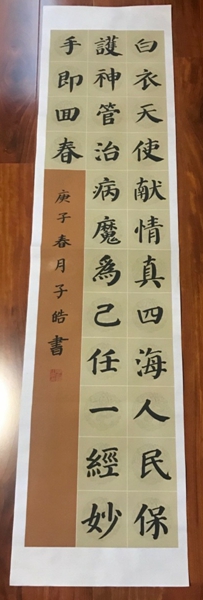 白衣天使献情真四海人民保
護神管治病魔為己任一經妙
手即回春
庚子春月子皓書